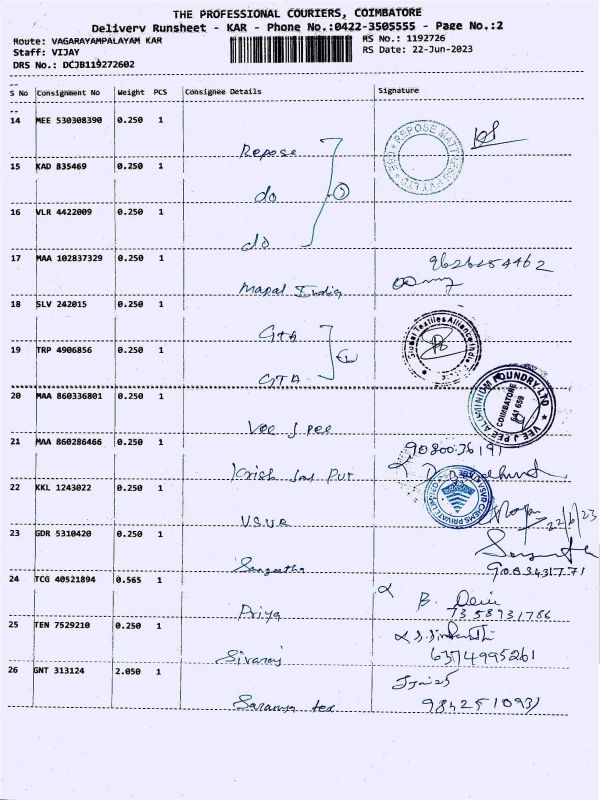 THE PROFESSIONAL COURIERS, COIMBATORE
Delivery Runsheet - KAR - Phone No.:0422-3505555 - Page No.:2
Route: VAGARAYAMPALAYAM KAR
RS No.: 1192726
Staff: VIJAY
RS Date: 22-Jun-2023
DRS No.: DCJB119272602
S No Consignment No Weight PCS Consignee Details Signature
14 MEE 530308390 0.250 1
Repose
REPOSE MATTRESS PVT LTD
15 KAD 835469 0.250 1
do
3
16 VLR 4422009 0.250 1
do
17 MAA 102837329 0.250 1
Mapal India
9626254462
18 SLV 242015 0.250 1
GTA
Global Textiles Alliance India
19 TRP 4906856 0.250 1
GTA
20 MAA 860336801 0.250 1
Vee J Pee
VEE JPEE ALUMINIUM FOUNDRY LTD
COIMBATORE
641 659
21 MAA 860286466 0.250 1
Krish Ind Pvt
9080036191
22 KKL 1243022 0.250 1
VSVR
VSVR CHEMS PRIVATE LIMITED
22/6/23
23 GDR 5310420 0.250 1
Sangeetha
24 TCG 40521894 0.565 1
Priya
B. Devi
7358931786
25 TEN 7529210 0.250 1
Sivaraj
6374995261
26 GNT 313124 2.050 1
Saranya tex
9842510931